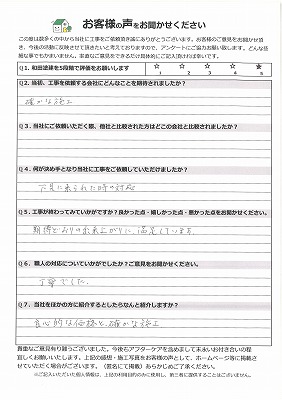 お客様の声をお聞かせください
この度は数多くの中から当社に工事をご依頼頂き誠にありがとうございます。お客様のご意見をお聞かせ頂
き、今後の活動に反映させて頂きたいと考えておりますので、アンケートにご協力お願い致します。どんな些
細な事でもかまいません、率直なご意見をできるだけ具体的にご記入頂ければ幸いです。
Q1. 和田塗建を5段階で評価をお願いします
☆ ☆ ☆ ☆ ★
1 2 3 4 5
Q2. 当初、工事を依頼する会社にどんなことを期待されましたか?
確かな施工
Q3. 当社にご依頼いただく際、他社と比較された方はどこの会社と比較されましたか?
Q4. 何が決め手となり当社に工事をご依頼していただけましたか?
下見に来られた時の対応
Q5. 工事が終わってみていかがですか?良かった点・嬉しかった点・悪かった点をお聞かせください。
期待どおりの出来上がりに、満足しています。
Q6. 職人の対応についていかがでしたか?ご意見をお聞かせください。
丁寧でした。
Q7. 当社をほかの方に紹介するとしたらなんと紹介しますか?
良心的な価格と、確かな施工
貴重なご意見有り難うございました。今後もアフターケアを含めまして末永いお付き合いの程
宜しくお願いいたします。上記の感想・施工写真をお客様の声として、ホームページ等に掲載さ
せていただく場合がございます。(匿名にて掲載)あらかじめご了承ください。
※ご記入いただいた個人情報は、上記の利用目的のみに使用し、第三者に提供することはございません。